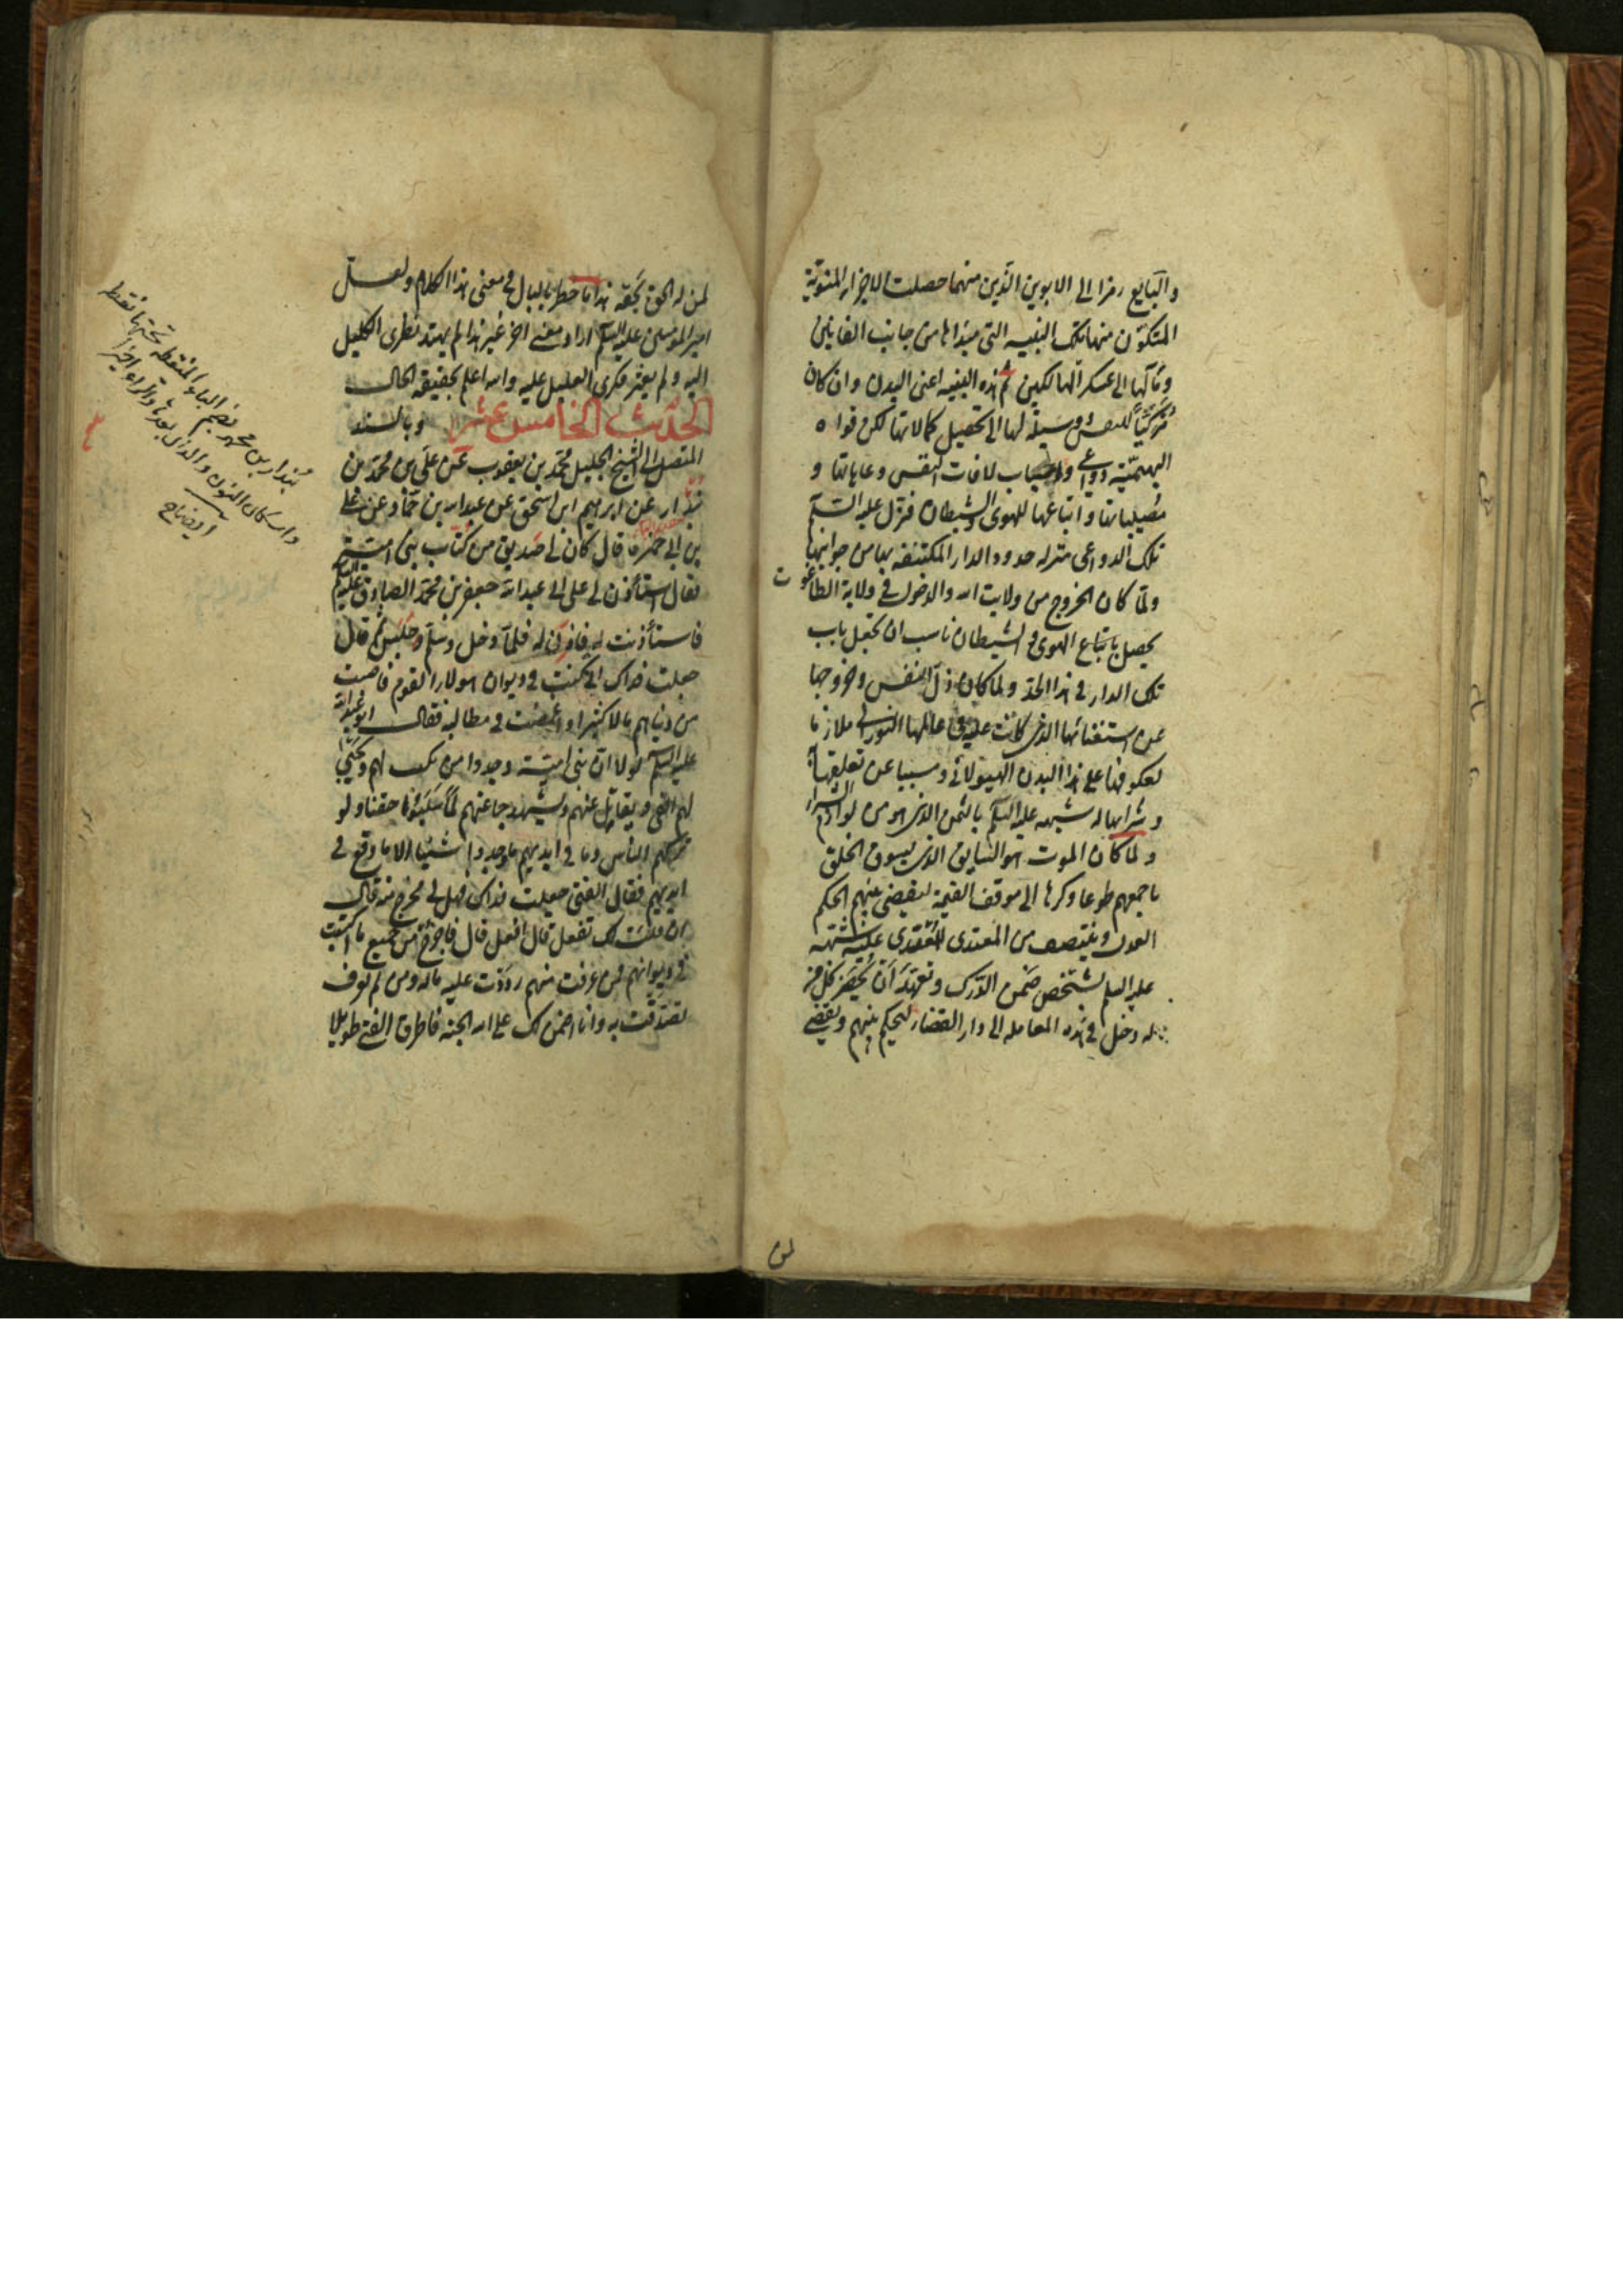 والبايع رمزا الى الابوين الذين منهما حصلت الاجزاء المنويّة
المتكوّن منها تلك البنيه التى مبتداها من جانب الفانين
ومآلها الى عسكر الهالكين ثم هذه البنيه اعنى البدن وان كان
مركبا للنفس ووسيلة لها الى تحصيل كمالاتها لكن قواه
البهيميّة دواعي واسباب لافات النفس وعاهاتها و
مصيباتها واتباعها للهوى والشيطان فنزل عليه السلم
تلك الدواعى منزله حدود الدار المكتنفه بها من جوانبها
ولمّا كان الخروج من ولايت الله والدخول فى ولاية الطاغوت
يحصل باتباع الهوى والشيطان ناسب ان يجعل باب
تلك الدار فى هذا الحد ولما كان ذل النفس وخروجها
عن استغنائها الذى كانت عليه فى عالمها النورى ملازما
لعكوفها على هذا البدن الهيولانى ومسببا عن تعلقها به
وشرائها له شبهه عليه السلم بالثمن الذى هو من لوازم الشراء
ولما كان الموت هو السايق الذى يسوق الخلق
باجمعهم طوعا وكرها الى موقف القيمة ليقضى بينهم الحكم
العدل وينتصف من المعتدى للمتعدى عليه شبهه
عليه السلم بشخص ضمن الدرك وتعهد ان يحضر كل من
له دخل فى هذه المعامله الى دار القضاء ليحكم بينهم ويقضى
لمن
لمن له الحق بحقه هذا ما خطر بالبال فى معنى هذا الكلام ولعل
امير المؤمنين عليه السلم اراد معنى اخر غير هذا لم يهتد نظرى الكليل
اليه ولم يعثر فكرى العليل عليه والله اعلم بحقيقه الحال
الحديث الخامس عشر وبالسند
المتصل الى الشيخ الجليل محمد بن يعقوب عن على بن محمد بن
بندار عن ابرهيم ابن اسحق عن عبدالله بن حماد عن على
بن ابى حمزه قال كان لى صديق من كتاب بنى اميّة
فقال استأذن لى على ابى عبدالله جعفر بن محمد الصادق عليه السلم
فاستأذنت له فاذن له فلمّا دخل وسلّم وجلس ثم قال
جعلت فداك انى كنت فى ديوان هولاء القوم فاصبت
من دنياهم مالا كثيرا واغمضت فى مطالبه فقال ابو عبدالله
عليه السلم لولا ان بنى اميّة وجدوا من يكتب لهم ويجبى
لهم الفئ ويقاتل عنهم ويشهد جماعتهم لما سلبونا حقنا ولو
تركهم الناس وما فى ايديهم ما وجدوا شيئا الا ما وقع فى
ايديهم فقال الفتى جعلت فداك فهل لى مخرج منه قال
ان قلت لك تفعل قال افعل قال فاخرج من جميع ما اكتسبت
فى ديوانهم فمن عرفت منهم رددت عليه ماله ومن لم تعرف
تصدقت به وانا اضمن لك على الله الجنه فاطرق الفتى طويلا
بندار بن محمد بضم الباء المنقطه تحتها نقطه
واسكان النون والدال بعدها والراء اخيرا
ايضاح